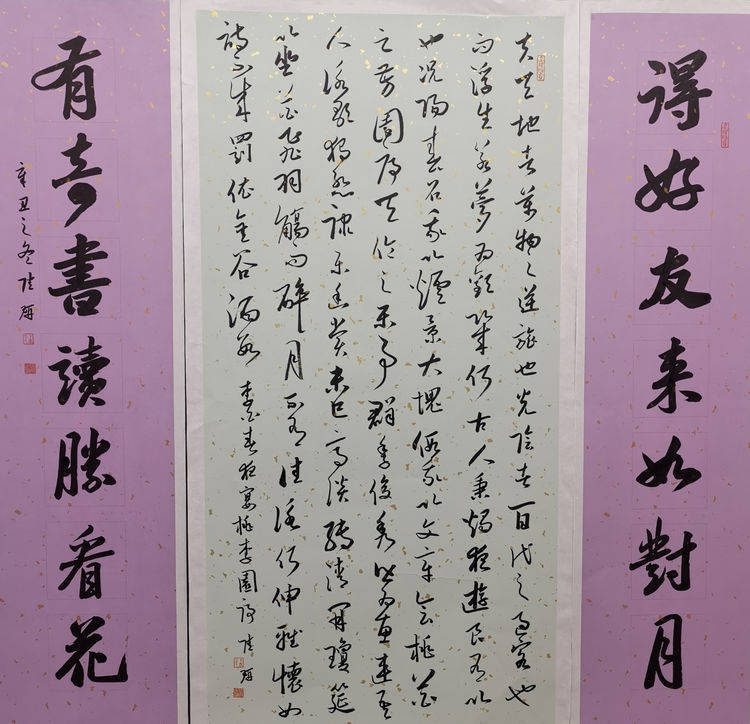 得好友来如對月
夫天地者萬物之逆旅也光陰者百代之過客也
而浮生若夢為歡幾何古人秉燭夜遊良有以
也況陽春召我以煙景大塊假我以文章會桃花
之芳園序天倫之樂事群季俊秀皆為惠連吾
人詠歌獨慚康樂幽賞未已高談轉清開瓊筵
以坐花飛羽觴而醉月不有佳詠何伸雅懷如
詩不成罰依金谷酒數 李白春夜宴桃李園序
有奇書讀勝看花
辛丑之冬